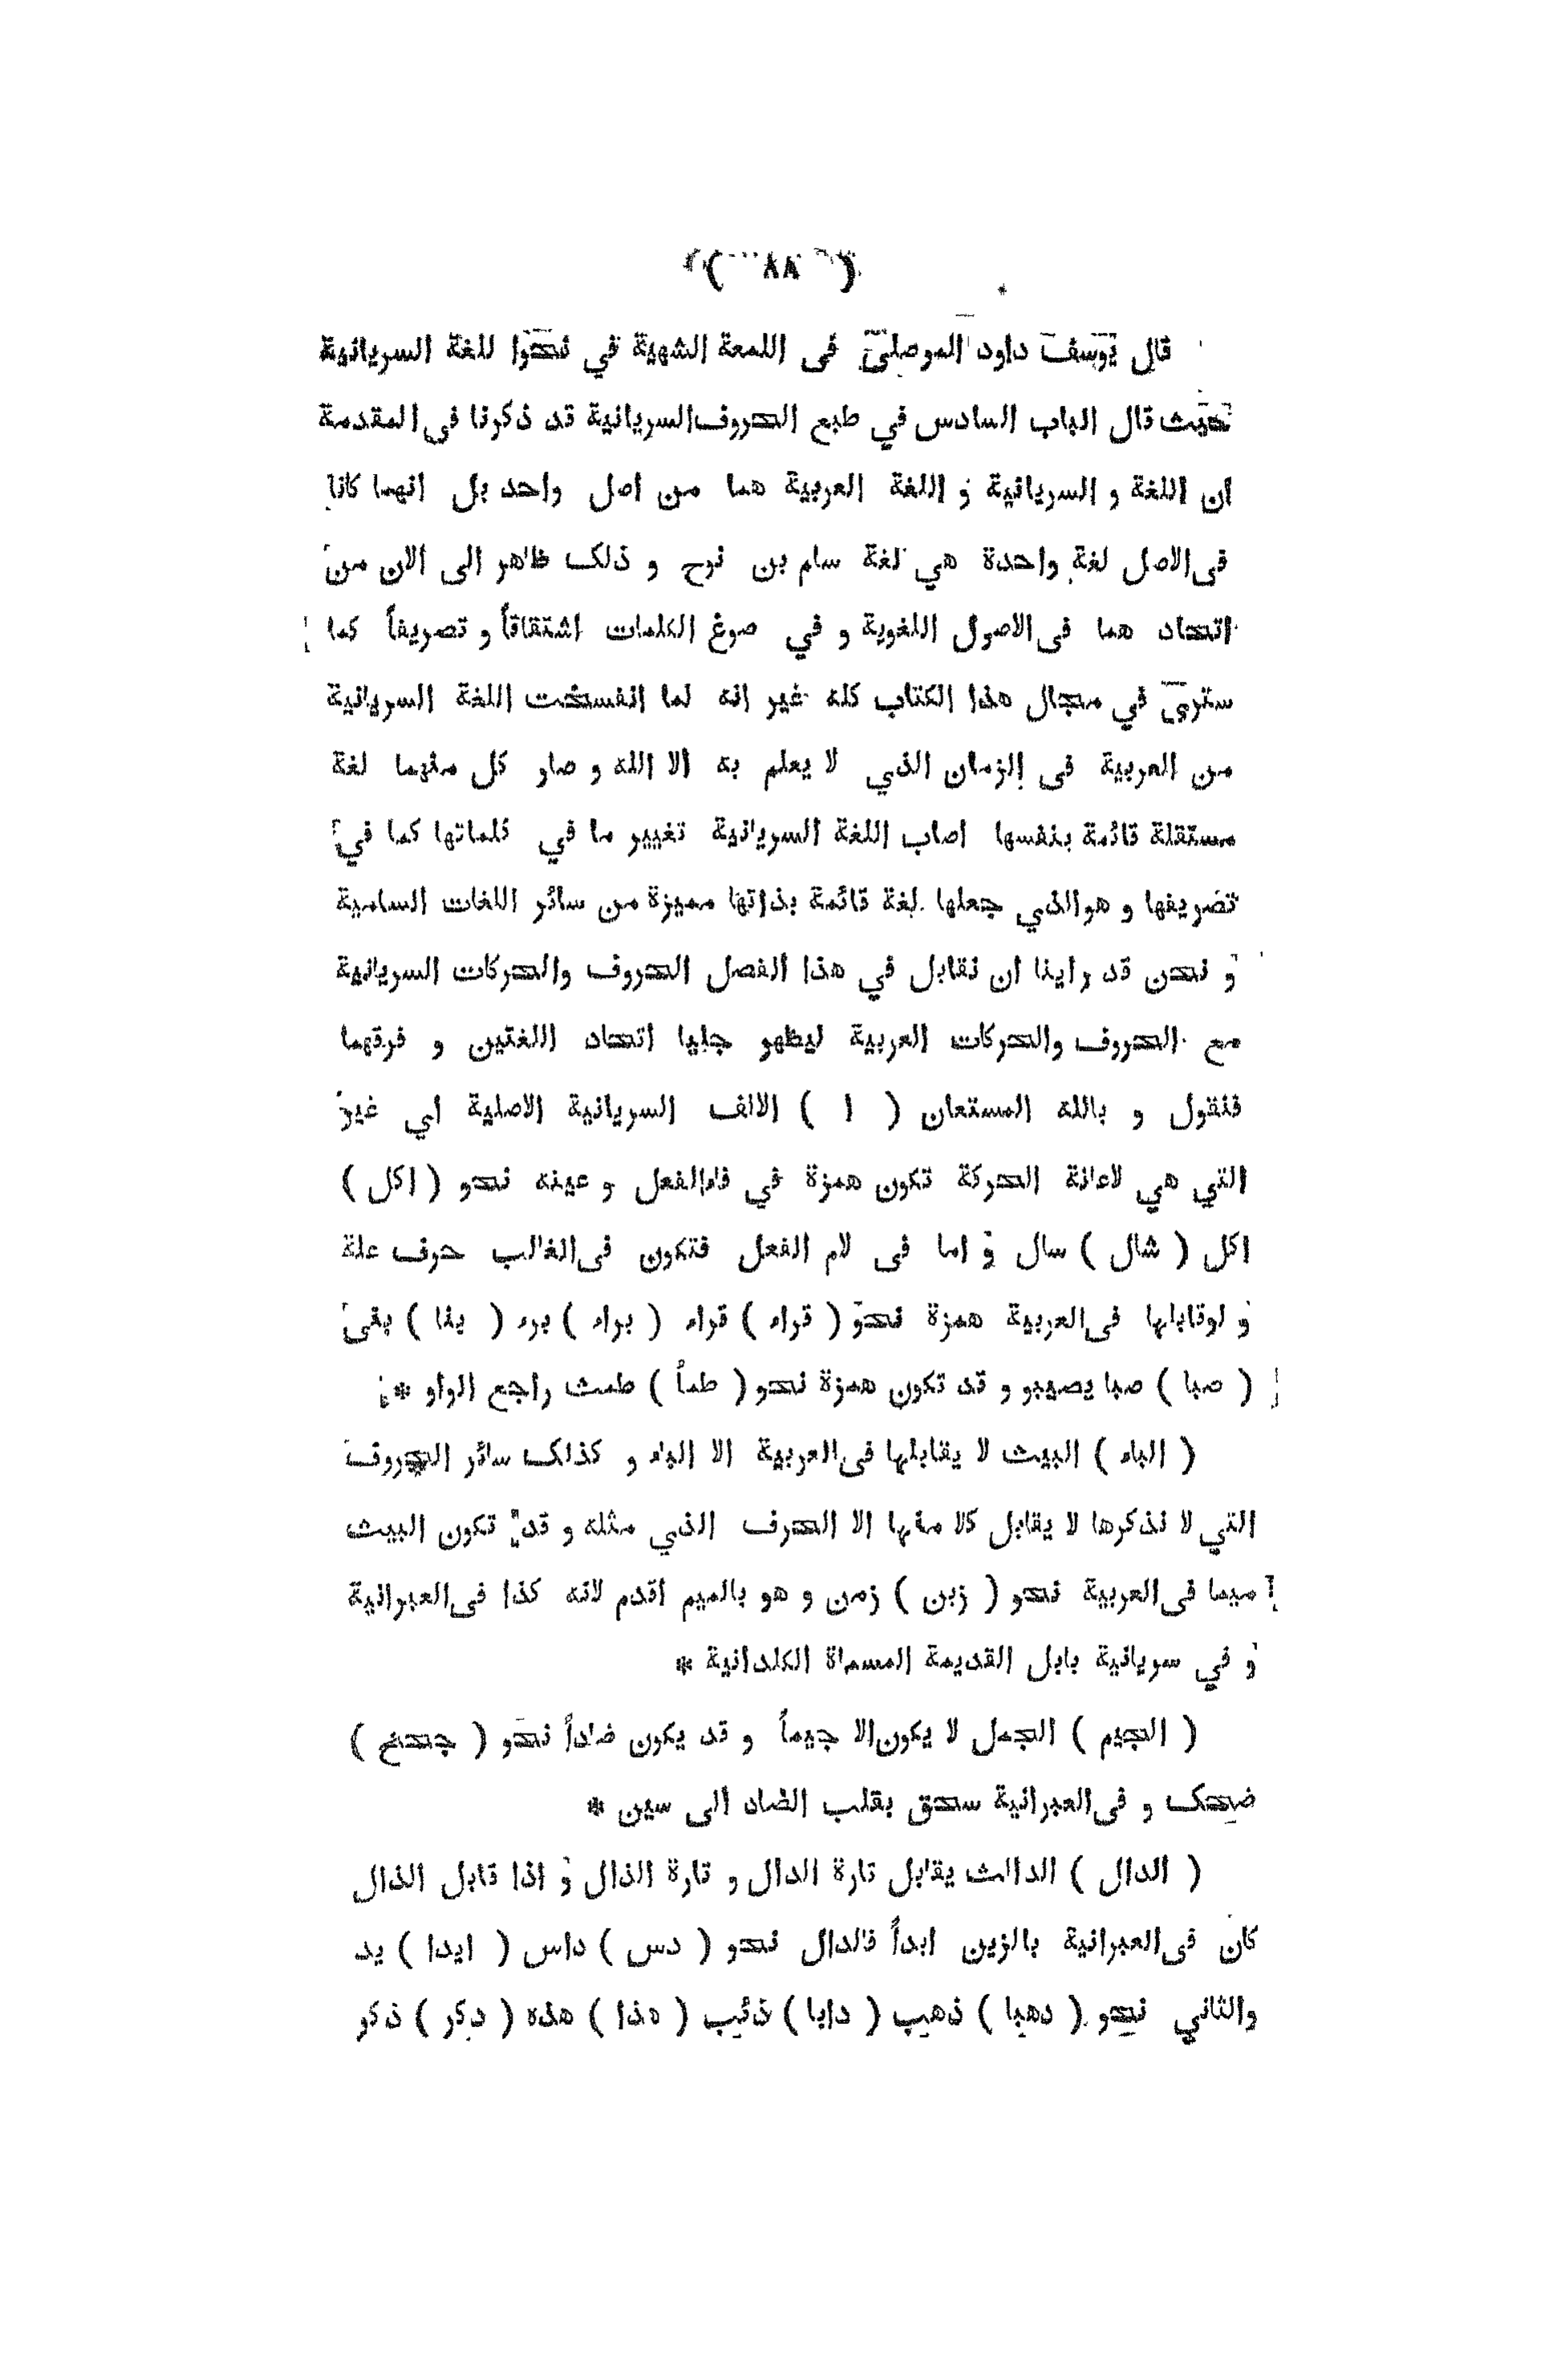 ( ٨٨ )
قال يوسف داود الموصلي فى اللمعة الشهية في نحوا للغة السريانية
حيث قال الباب السادس في طبع الحروف السريانية قد ذكرنا فى المقدمة
ان اللغة و السريانية و اللغة العربية هما من اصل واحد بل انهما كانا
فى الاصل لغة واحدة هي لغة سام بن نوح و ذلك ظاهر الى الان من
اتحاد هما فى الاصول اللغوية و في صوغ الكلمات اشتقاقاً و تصريفاً كما
سترى في مجال هذا الكتاب كله غير انه لما انفسخت اللغة السريانية
من العربية فى الزمان الذي لا يعلم به الا الله و صار كل منهما لغة
مستقلة قائمة بنفسها اصاب اللغة السريانية تغيير ما في كلماتها كما في
تصريفها و هو الذي جعلها لغة قائمة بذاتها مميزة من سائر اللغات السامية
و نحن قد راينا ان نقابل في هذا الفصل الحروف والحركات السريانية
مع الحروف والحركات العربية ليظهر جليا اتحاد اللغتين و فرقهما
فنقول و بالله المستعان ( ا ) الالف السريانية الاصلية اي غير
التي هي لاعانة الحركة تكون همزة في فاء الفعل و عينه نحو ( اكل )
اكل ( شال ) سال و اما فى لام الفعل فتكون فى الغالب حرف علة
و لوقابلها فى العربية همزة نحو ( قراء ) قراء ( براء ) برء ( بنا ) بنى
( صبا ) صبا يصبو و قد تكون همزة نحو ( طمأ ) طمث راجع الواو *
( الباء ) البيث لا يقابلها فى العربية الا الباء و كذلك سائر الحروف
التي لا نذكرها لا يقابل كلا منها الا الحرف الذي مثله و قد تكون البيث
ميما فى العربية نحو ( زبن ) زمن و هو بالميم اقدم لانه كذا فى العبرانية
و في سريانية بابل القديمة المسماة الكلدانية *
( الجيم ) الجمل لا يكون الا جيماً و قد يكون ضاداً نحو ( جحخ )
ضحك و فى العبرانية سحق بقلب الضاد الى سين *
( الدال ) الدالث يقابل تارة الدال و تارة الذال و اذا قابل الذال
كان فى العبرانية بالزين ابداً فالدال نحو ( دس ) داس ( ايدا ) يد
والثاني نحو ( دهبا ) ذهب ( دابا ) ذئب ( هذا ) هذه ( دكر ) ذكر